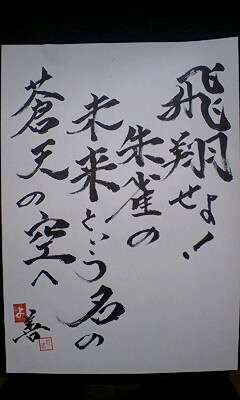 飛翔せよ!
朱雀の
未来という名の
蒼天の空へ
善
よ